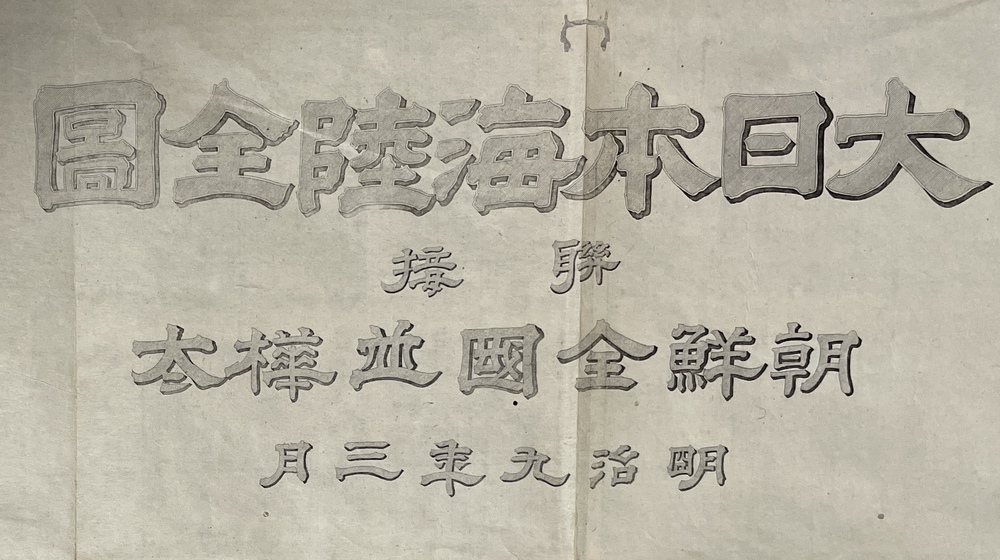 大日本海陸全圖
聯接
朝鮮全國並樺太
明治九年三月